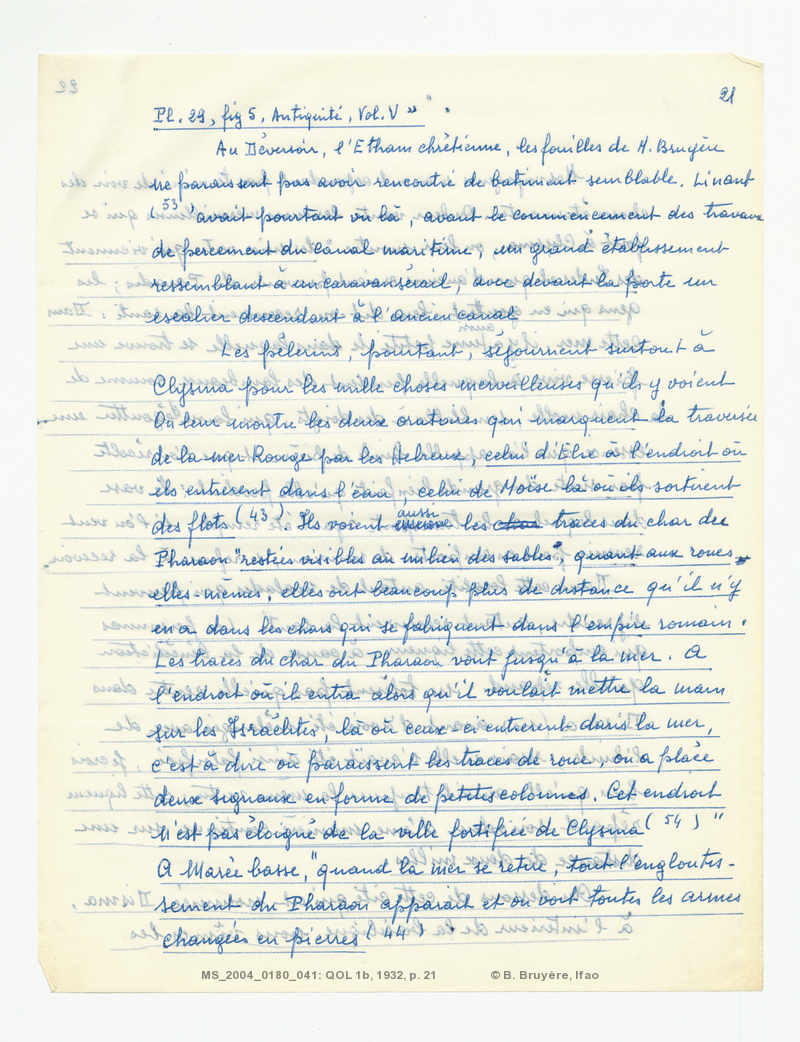 21
Pl. 29, fig 5, Antiquité, Vol. V »
Au Déversoir, l'Etham chrétienne, les fouilles de M. Bruyère
ne paraissent pas avoir rencontré de batiment semblable. Linant
(53) l'avait pourtant vu là, avant le commencement des travaux
de percement du canal maritime, un grand établissement
ressemblant à un caravansérail, avec devant la porte un
escalier descendant à l'ancien canal
Les pèlerins, pourtant, séjournent surtout à
Clysma pour les mille choses merveilleuses qu'ils y voient
On leur montre les deux oratoires qui marquent la traversée
de la mer Rouge par les Hebreux, celui d'Elie à l'endroit où
ils entrerent dans l'eau, celui de Moïse là où ils sortirent
des flots (43). Ils voient aussi les char traces du char de
Pharaon "restées visibles au milien des sables", quant aux roues
elles-mêmes, elles ont beaucoup plus de distance qu'il n'y
en a dans les chars qui se fabriquent dans l'empire romain.
Les traces du char du Pharaon vont jusqu'à la mer. A
l'endroit où il entra alors qu'il voulait mettre la main
sur les Israélites, là où ceux-ci entrerent dans la mer,
c'est à dire où paraissent les traces de roue, on a placé
deux signaux en forme de petites colonnes. Cet endroit
n'est pas éloigné de la ville fortifiée de Clysma (54) "
A Marée basse, "quand la mer se retire, tout l'engloutis-
sement du Pharaon apparait et on voit toutes les armes
changées en pierres (44)
MS_2004_0180_041: QOL 1b, 1932, p. 21 © B. Bruyère, Ifao